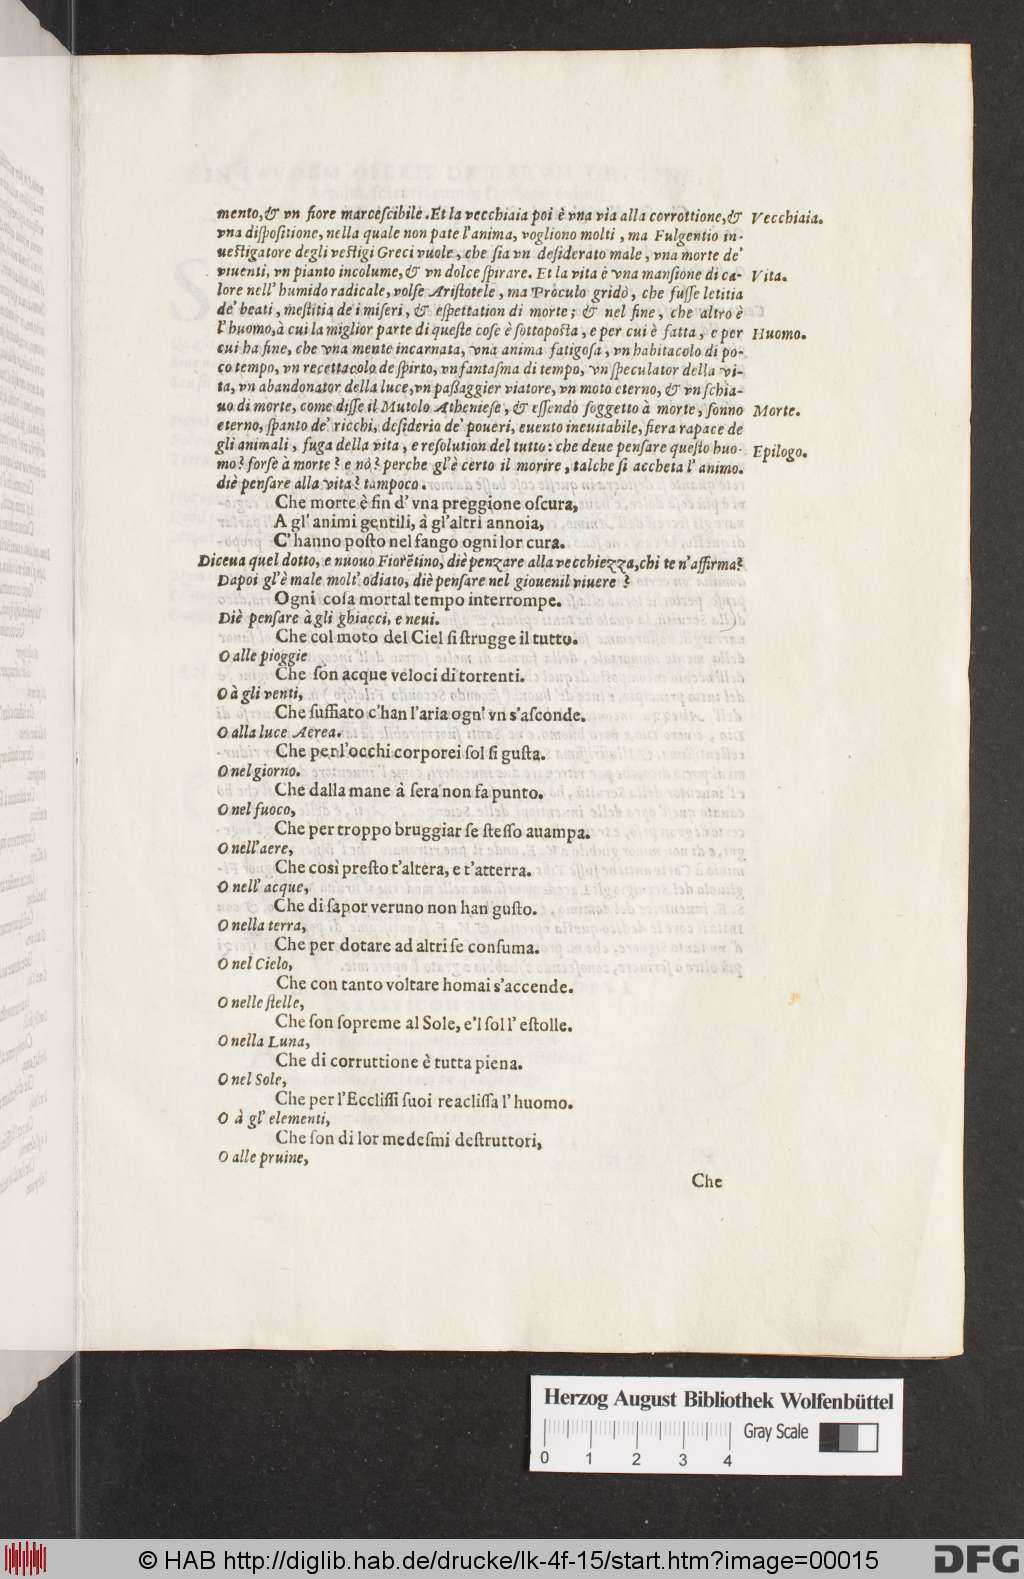 mento, & vn fiore marcescibile. Et la vecchiaia poi è vna via alla corrottione, & Vecchiaia.
vna dispositione, nella quale non pate l'anima, vogliono molti, ma Fulgentio in-
uestigatore degli vestigi Greci vuole, che sia vn desiderato male, vna morte de'
viuenti, vn pianto incolume, & vn dolce spirare. Et la vita è vna mansione di ca- Vita.
lore nell' humido radicale, volse Aristotele, ma Proculo gridò, che fusse letitia
de' beati, mestitia de i miseri, & espettation di morte; & nel fine, che altro è
l' huomo, à cui la miglior parte di queste cose è sottoposta, e per cui è fatta, e per Huomo.
cui ha fine, che vna mente incarnata, vna anima fatigosa, vn habitacolo di po-
co tempo, vn recettacolo de spirto, vn fantasma di tempo, vn speculator della vi-
ta, vn abandonator della luce, vn paßaggier viatore, vn moto eterno, & vn schia-
uo di morte, come disse il Mutolo Atheniese, & essendo soggetto à morte, sonno Morte.
eterno, spanto de' ricchi, desiderio de' poueri, euento ineuitabile, fiera rapace de
gli animali, fuga della vita, e resolution del tutto: che deue pensare questo huo- Epilogo.
mo? forse à morte? e nò? perche gl'è certo il morire, talche si accheta l' animo.
diè pensare alla vita? tampoco.
Che morte è fin d' vna preggione oscura,
A gl' animi gentili, à gl'altri annoia,
C' hanno posto nel fango ogni lor cura.
Diceua quel dotto, e nuouo Fiorẽtino, diè penzare alla vecchiezza, chi te n'affirma?
Dapoi gl'è male molt' odiato, diè pensare nel giouenil viuere?
Ogni cosa mortal tempo interrompe.
Diè pensare à gli ghiacci, e neui.
Che col moto del Ciel si strugge il tutto.
O alle pioggie
Che son acque veloci di torrenti.
O à gli venti,
Che suffiato c'han l'aria ogn' vn s'asconde.
O alla luce Aerea.
Che per l'occhi corporei sol si gusta.
O nel giorno.
Che dalla mane à sera non fa punto.
O nel fuoco,
Che per troppo bruggiar se stesso auampa.
O nell'aere,
Che così presto t'altera, e t'atterra.
O nell' acque,
Che di sapor veruno non han gusto.
O nella terra,
Che per dotare ad altri se consuma.
O nel Cielo,
Che con tanto voltare homai s'accende.
O nelle stelle,
Che son sopreme al Sole, e'l sol l' estolle.
O nella Luna,
Che di corruttione è tutta piena.
O nel Sole,
Che per l'Ecclissi suoi reaclissa l' huomo.
O à gl' elementi,
Che son di lor medesmi destruttori,
O alle pruine,
Che
Herzog August Bibliothek Wolfenbüttel
Gray Scale
0 1 2 3 4
© HAB http://diglib.hab.de/drucke/lk-4f-15/start.htm?image=00015
DFG